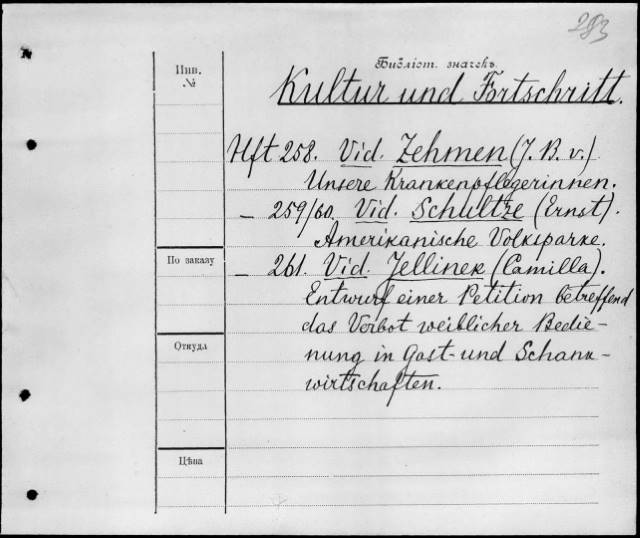 283
Библіот. значекъ.
Инв.
№
Kultur und Fortschritt.
Hft 258. Vid. Zehmen (J. B. v.)
Unsere Krankenpflegerinnen.
– 259/60. Vid. Schultze (Ernst).
Amerikanische Volksparke.
По заказу
– 261. Vid. Jellinek (Camilla).
Entwurf einer Petition betreffend
das Verbot weiblicher Bedie-
Откуда
nung in Gast- und Schank-
wirtschaften.
Цѣна